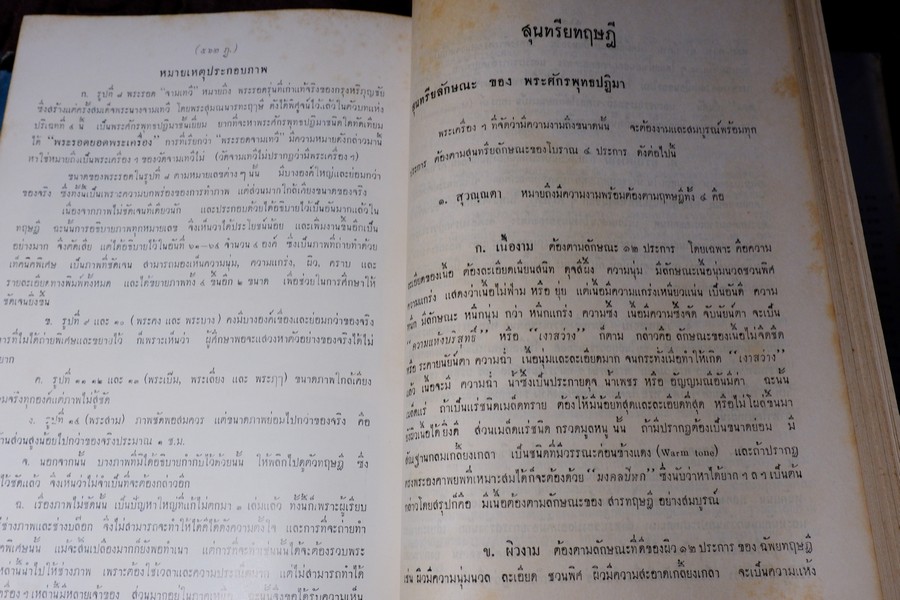 (๕๖๓ ฎ.)
หมายเหตุประกอบภาพ
ก. รูปที่ ๘ พระรอด "จามเทวี" หมายถึง พระรอดรุ่นที่เก่าแท้จริงของกรุงหริภุญชัย
ซึ่งสร้างแต่ครั้งสมเด็จพระนางจามเทวี โดยพระสุมณนารทะฤาษี ดังได้พิศูจน์ไว้แล้วในตัวบทแห่ง
ปริเฉทที่ ๔ นี้ เป็นพระศักรพุทธปฏิมาชั้นเยี่ยม ยากที่จะหาพระศักรพุทธปฏิมาชนิดใดทัดเทียม
ได้ "พระรอดยอดพระเครื่อง" การที่เรียกว่า "พระรอดจามเทวี" มีความหมายดังกล่าวมานี้
หาใช่หมายถึงเป็นพระเครื่อง ๆ ของวัดจามเทวีไม่ (วัดจามเทวีไม่ปรากฏว่ามีพระเครื่อง ๆ)
ขนาดของพระรอดในรูปที่ ๘ ตามหมายเลขต่างๆ นั้น มีบางองค์ใหญ่และย่อมกว่า
ของจริง ซึ่งทั้งนี้เป็นเพราะความบกพร่องของการทำภาพ แต่ส่วนมากใกล้เคียงขนาดของจริง
เนื่องจากภาพไม่ชัดเจนทีเดียวนัก และประกอบด้วยได้อธิบายไว้เป็นอันมากแล้วใน
ทฤษฎี ฉะนั้นการอธิบายภาพทุกหมายเลข จึงเห็นว่าได้ประโยชน์น้อย และเพิ่มงานขึ้นอีกเป็น
อย่างมาก จึงตัดเสีย แต่ได้อธิบายไว้ในอันที่ ๖๑–๖๔ จำนวน ๔ องค์ ซึ่งเป็นภาพที่ถ่ายทำด้วย
เท็คนิคพิเศษ เป็นภาพที่ชัดเจน สามารถมองเห็นความนุ่ม, ความแกร่ง, ผิว, คราบ และ
รายละเอียดทางพิมพ์ทั้งหมด และได้ขยายภาพทั้ง ๔ ขึ้นอีก ๒ ขนาด เพื่อช่วยในการศึกษาให้
ชัดเจนยิ่งขึ้น
ข. รูปที่ ๙ และ ๑๐ (พระคง และ พระบาง) คงมีบางองค์เขื่องและย่อมกว่าของจริง
การที่ไม่ได้ถ่ายพิเศษและขยายไว้ ก็เพราะเห็นว่า ผู้ศึกษาพอจะแสวงหาตัวอย่างของจริงได้ไม่
ยาก
ค. รูปที่ ๑๑ ๑๒ และ ๑๓ (พระเปิม, พระเลี่ยง และ พระฦๅ) ขนาดภาพใกล้เคียง
จริงทุกองค์แต่ภาพไม่สู้ชัด
ง. รูปที่ ๑๔ (พระสาม) ภาพชัดพอสมควร แต่ขนาดภาพย่อมไปกว่าของจริง คือ
ด้านส่วนสูงน้อยไปกว่าของจริงประมาณ ๑ ซ.ม.
จ. นอกจากนั้น บางภาพที่มิได้อธิบายกำกับไว้ด้วยนั้น ให้พลิกไปดูตัวทฤษฎี ซึ่ง
ไว้ชัดแล้ว จึงเห็นว่าไม่จำเป็นที่จะต้องกล่าวอีก
ฉ. เรื่องภาพไม่ชัดนั้น เป็นปัญหาใหญ่ที่แก้ไม่ตกมา ๓ เล่มแล้ว ทั้งนี้ก็เพราะผู้เรียบ
ช่างภาพและช่างบล๊อก จึงไม่สามารถจะทำให้ได้ดีได้ดังความตั้งใจ และการที่จะถ่ายทำ
พิเศษนั้น แม้จะสิ้นเปลืองมากก็ยังพอทำเนา แต่การที่จะ นั้นได้จะต้องรวบพระ
เหล่านั้นไปให้ช่างภาพ เพราะต้องใช้เวลาและความประณีตมาก แต่ไม่สามารถทำได้

สุนทรียทฤษฎี
สุนทรียลักษณะ ของ พระศักรพุทธปฏิมา
พระเครื่อง ๆ ที่จัดว่ามีความงามถึงขนาดนั้น จะต้องงามและสมบูรณ์พร้อมทุก
ประการ ต้องตามสุนทรียลักษณะของโบราณ ๔ ประการ ดังต่อไปนี้
๑. สุวณฺณตา หมายถึงมีความงามพร้อมต้องตามทฤษฎีทั้ง ๔ คือ
ก. เนื้องาม ต้องตามลักษณะ ๑๒ ประการ โดยเฉพาะ คือความ
ละเอียดของเนื้อ ต้องละเอียดเนียนสนิท ดุจสีผึ้ง ความนุ่ม มีลักษณะเนื้อนุ่มนวลชวนพิศ
ความแกร่ง แสดงว่าเนื้อไม่ฟ่าม หรือ ยุ่ย แต่เนื้อมีความแกร่งเหนียวแน่น เป็นอันดี ความ
หนึก มีลักษณะ หนึกนุ่ม กว่า หนึกแกร่ง ความซึ้ง เนื้อมีความซึ้งจัด จับนัยน์ตา จะเป็น
"ความแห้งบริสุทธิ์" หรือ "เงาสว่าง" ก็ตาม กล่าวคือ ลักษณะของเนื้อไม่จืดชืด
หรือ ระคายนัยน์ตา ความฉ่ำ เนื้อนุ่มและละเอียดมาก จนกระทั่งเมื่อทำให้เกิด "เงาสว่าง"
แล้ว เนื้อจะมี ความฉ่ำ น้ำซึ่งเป็นประกายดุจ น้ำเพชร หรือ อัญญมณีอันมีค่า ฉะนั้น
เม็ดแร่ ถ้าเป็นแร่ชนิดเม็ดทราย ต้องให้มีน้อยที่สุดและละเอียดที่สุด หรือไม่โผล่ขึ้นมา
ผิวเนื้อได้ยิ่งดี ส่วนเม็ดแร่ชนิด กรวดมูลหนู นั้น ถ้ามีปรากฏต้องเป็นขนาดย่อม มี
สัณฐานกลมเกลี้ยงเกลา เป็นชนิดที่มีวรรณะค่อนข้างแดง (Warm tone) และถ้าปรากฏ
ตรงพระองคาพยพที่เหมาะสมได้ก็จะต้องด้วย "มงคลนิทก" ซึ่งนับว่าหาได้ยาก ๆ ถ ๆ เป็นต้น
กล่าวโดยสรุปก็คือ มีเนื้อต้องตามลักษณะของ สารทฤษฎี อย่างสมบูรณ์
ข. ผิวงาม ต้องตามลักษณะที่ดีของผิว ๑๒ ประการ ของ ฉัพยทฤษฎี
เช่น ผิวมีความนุ่มนวล ละเอียด ชวนพิศ ผิวมีความสะอาดเกลี้ยงเกลา จะเป็นความแห้ง